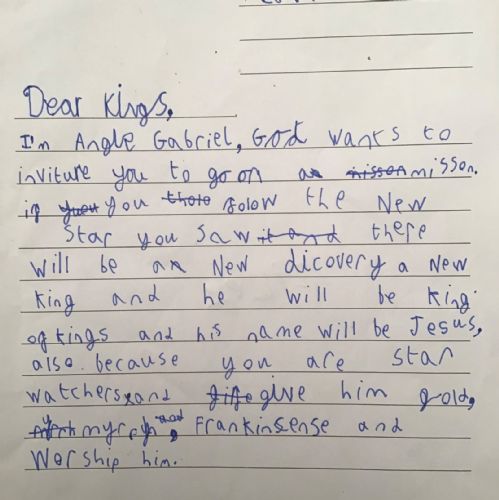 Dear Kings,
I'm Angle Gabriel, God wants to
inviture you to go on a misson.
if you folow the New
Star you saw there
will be a New dicovery a New
king and he will be King
of kings and his name will be Jesus,
also because you are star
watchers and give him gold,
myrr, Frankinsense and
Worship him.